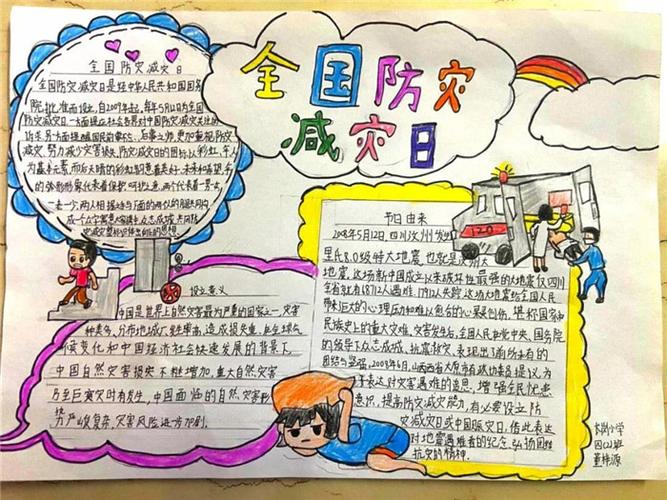 全国防灾
减灾日
全国防灾减灾日
全国防灾减灾日是经中华人民共和国国务
院批准而设立,自2009年起,每年5月12日为全国
防灾减灾日。一方面提应社会各界对中国防灾减灾关注的
诉求,另一方面提醒国民前事不忘、后事之师,更加重视防灾
减灾,努力减少灾害损失。防灾减灾日的图标以彩虹、人
为基本元素,雨后天晴的彩虹
的弧形形象代表着保护、呵护之意,两个代表着一男
一老一少,两人相握
减灾
设立意义
中国是世界上自然灾害最为严重的国家之一,灾害
种类多,分布地域广,发生频率高,造成损失重,在全球气
候变化和中国经济社会快速发展的背景下,
中国自然灾害损失不断增加,重大自然灾害
乃至巨灾时有发生,中国面临的自然灾害形
势严峻复杂,灾害风险进一步加剧。
节日由来
2008年5月12日,四川汶川发生
里氏8.0级特大地震,也就是汶川大
地震,这场新中国成立以来破坏性最强的大地震,仅四川
省就有68712人遇难,17912人失踪,这场大地震给全国人民
带来巨大的心理压力和难以愈合的心灵创伤,堪称国家和
民族史上的重大灾难。灾害发生后,全国人民在党中央、国务院
的领导下众志成城、抗震救灾,表现出了前所未有的
团结与坚强。
于表达对灾害遇难的追思,增强全民忧患
意识,提高防灾减灾能力,有必要设立防
灾减灾日或中国赈灾日,借此表达
对地震遇难者的纪念,弘扬团结
抗灾的精神。
120
小学
四(2)班
董梓源